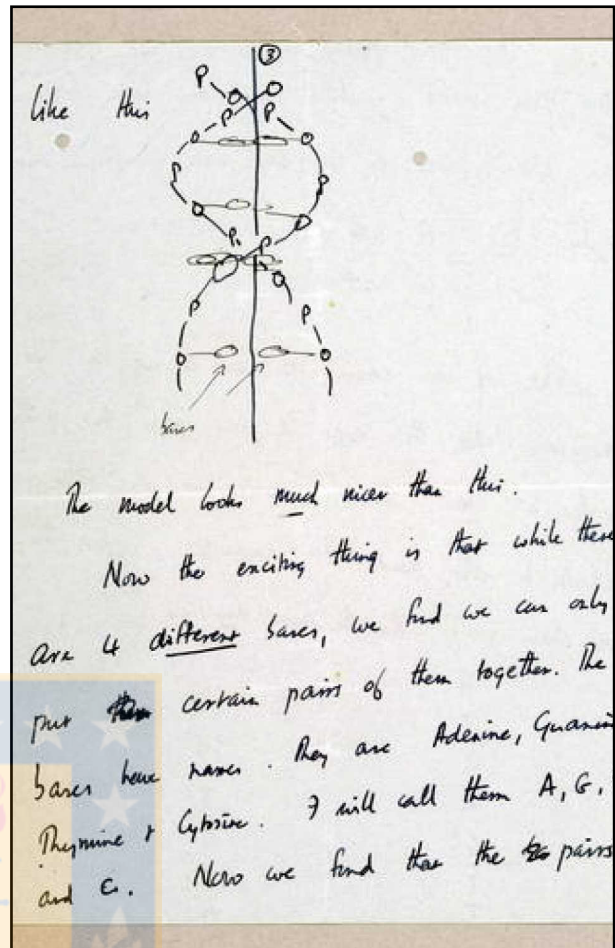 ③
like this
P
O O
P P
O O
P P
O O
P. P
O
P P
O O
bases
The model looks much nicer than this.
Now the exciting thing is that while there
are 4 different bases, we find we can only
put certain pairs of them together. The
bases have names. They are Adenine, Guanine
Thymine & Cytosine. I will call them A, G,
and C. Now we find that the pairs